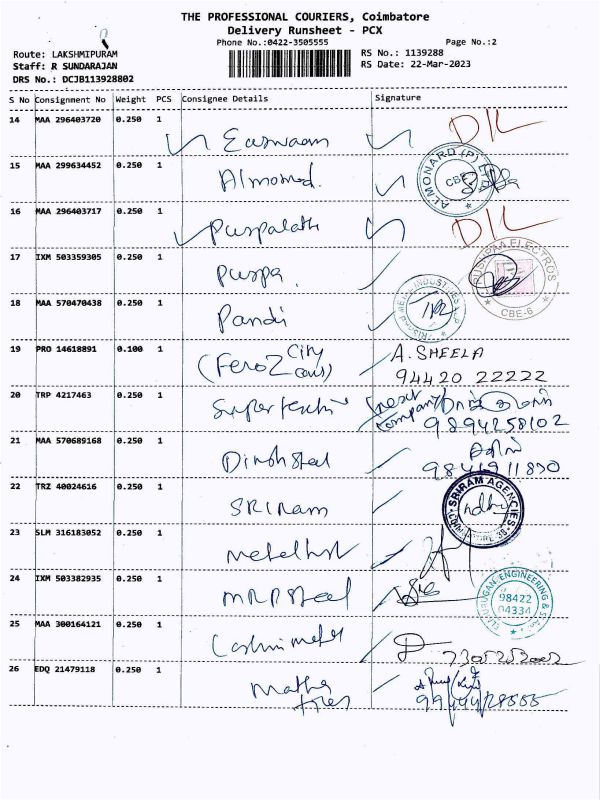 THE PROFESSIONAL COURIERS, Coimbatore
Delivery Runsheet - PCX
Phone No.:0422-3505555 Page No.:2
Route: LAKSHMIPURAM RS No.: 1139288
Staff: R SUNDARAJAN RS Date: 22-Mar-2023
DRS No.: DCJB113928802
S No Consignment No Weight PCS Consignee Details Signature
14 MAA 296403720 0.250 1
Easwaran DIL
15 MAA 299634452 0.250 1
Almonad. ALMONARD (P) LTD CBE
16 MAA 296403717 0.250 1
Puspalath DIL
17 IXM 503359305 0.250 1
Puspa PUSHPAA ELECTROS CBE-6
18 MAA 570470438 0.250 1
Pandi INDUSTRIES
19 PRO 14618891 0.100 1
(Feroz City A. SHEELA
94420 22222
20 TRP 4217463 0.250 1
next
company
9894258102
21 MAA 570689168 0.250 1
Dinesh Steel 9841911890
22 TRZ 40024616 0.250 1
SRIRam SRIRAM AGENCIES
23 SLM 316183052 0.250 1
24 IXM 503382935 0.250 1
MRP Steel ENGINEERING
98422
04334
25 MAA 300164121 0.250 1
26 EDQ 21479118 0.250 1
Matha